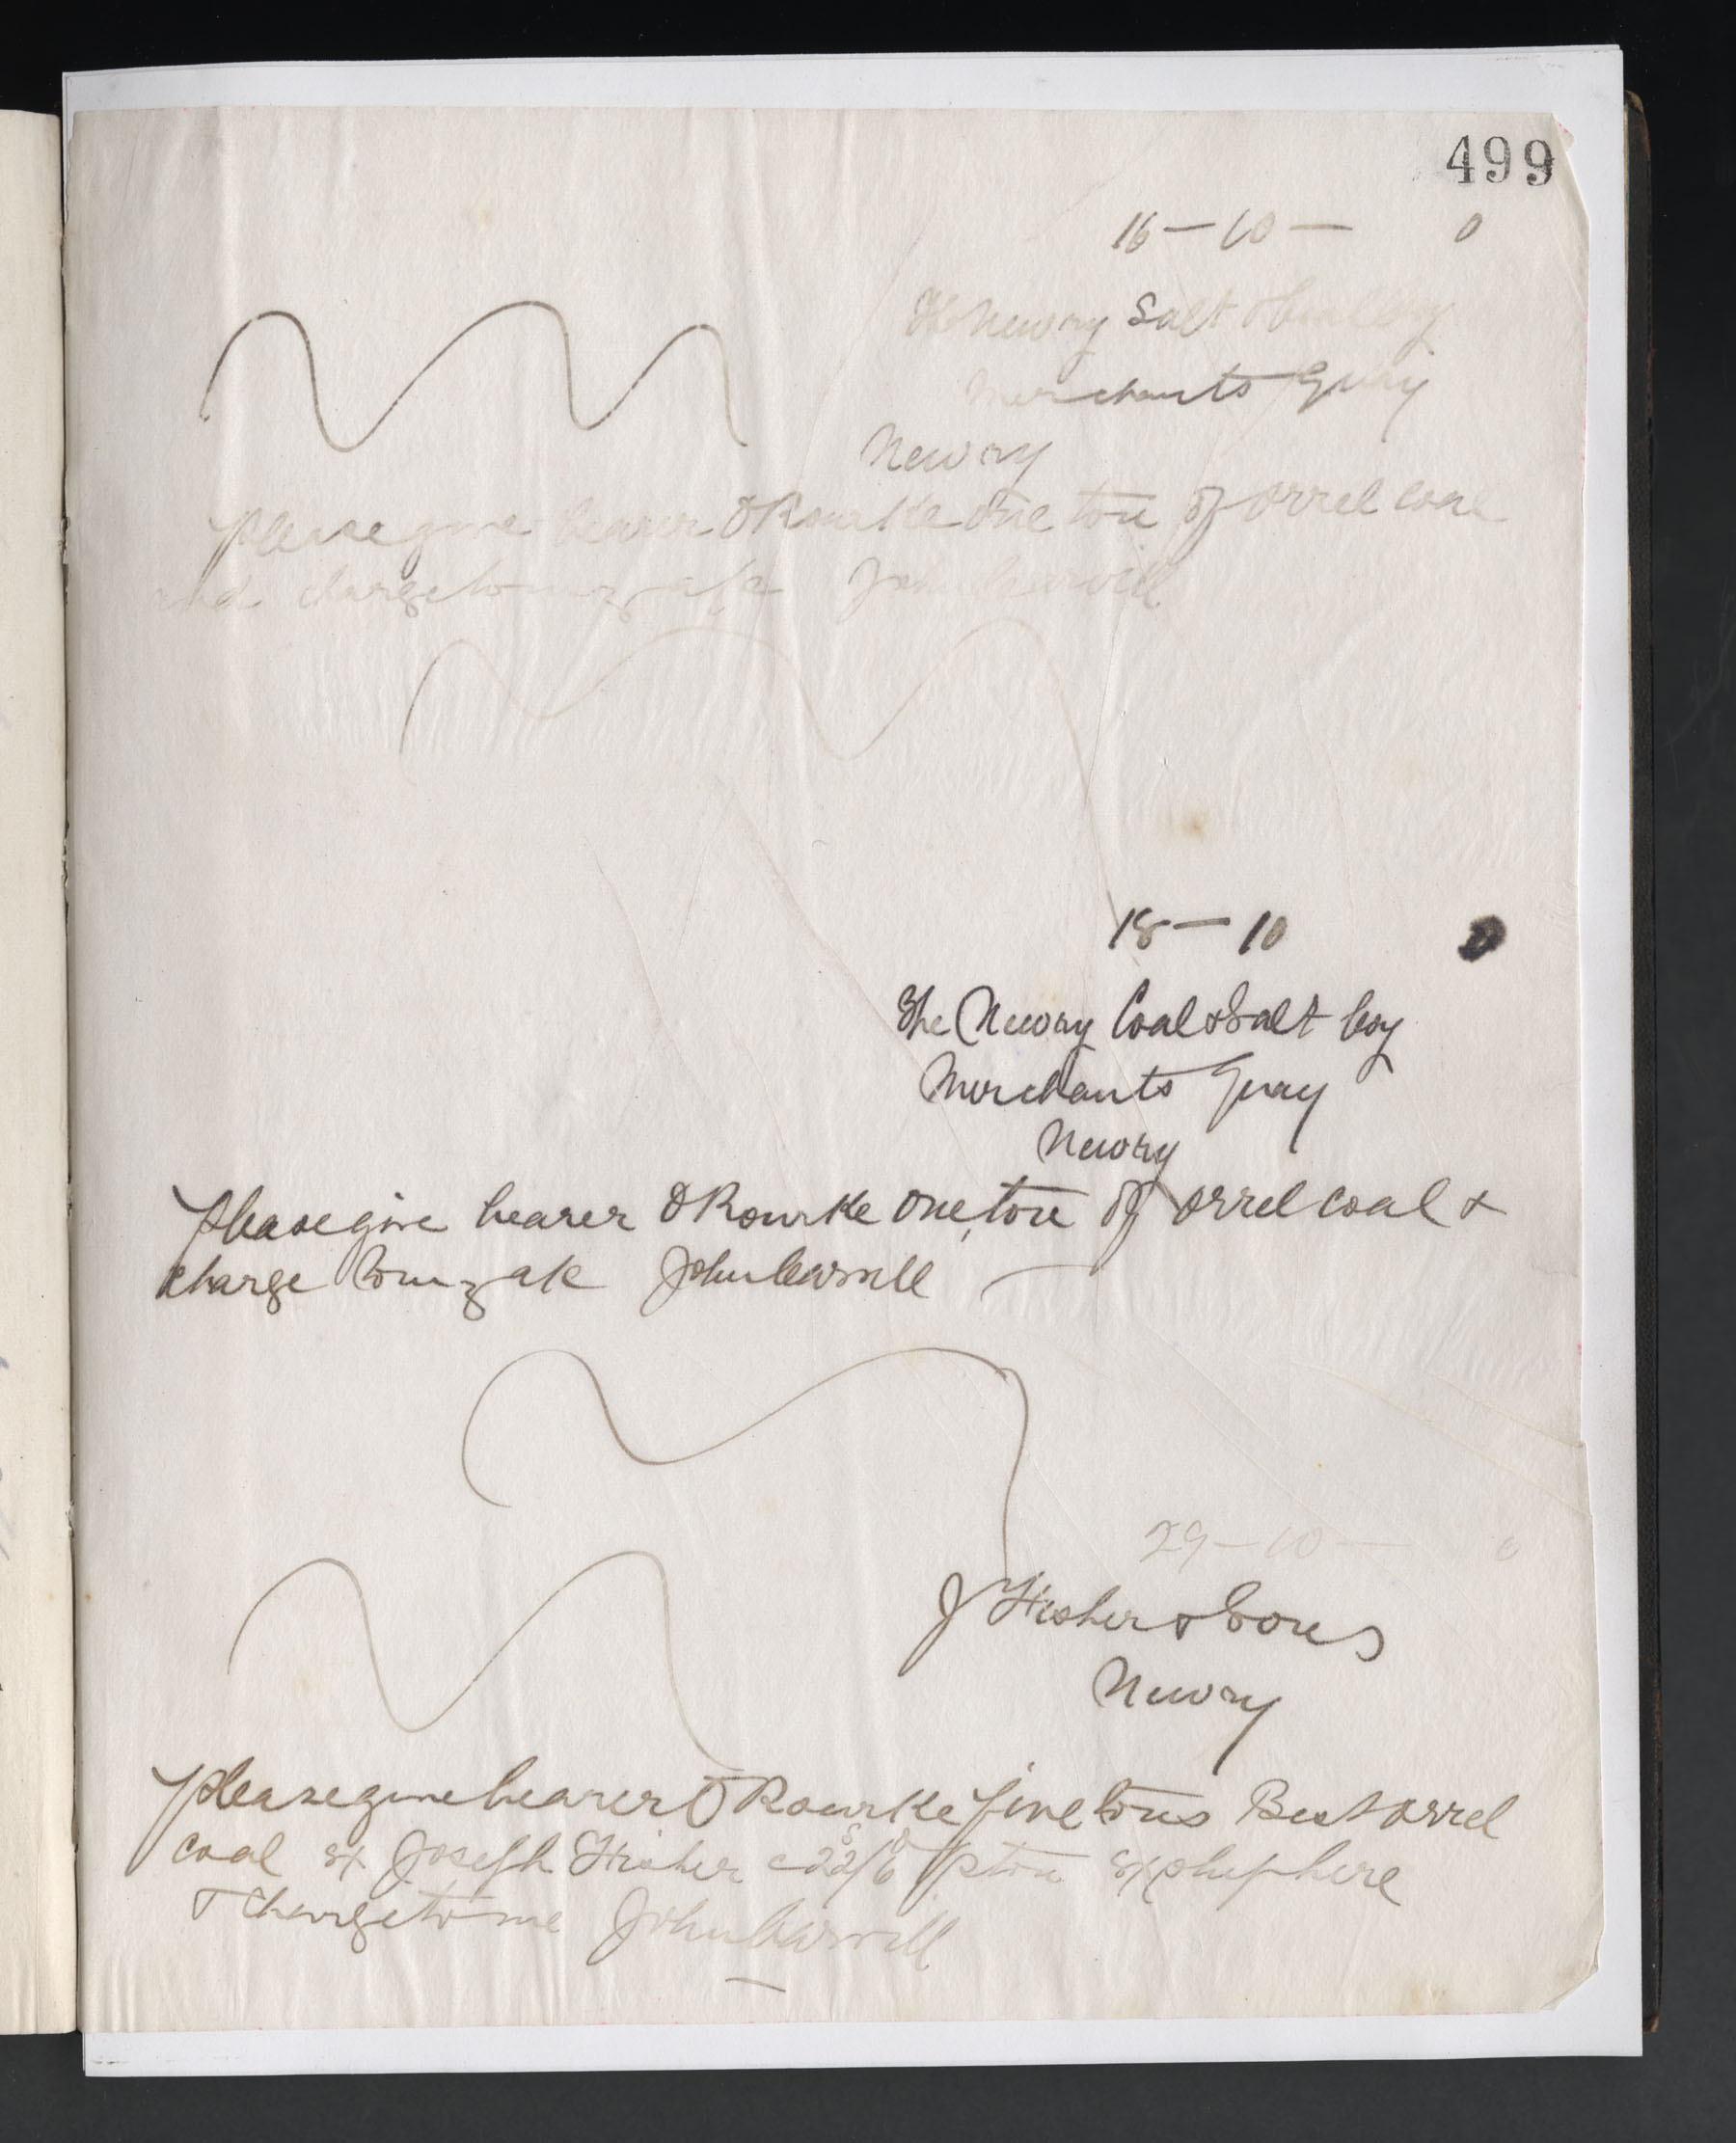 499
16 – 10 – 0
The Newry Salt & Coal Coy
Merchants Quay
Newry
Please give bearer O Rourke one ton of orrel coal
and charge to my a/c John Carvill
18 – 10 0
The Newry Coal & Salt Coy
Merchants Quay
Newry
Please give bearer O Rourke one ton of orrel coal &
charge to my a/c John Carvill
29 – 10 – 0
J Fisher & Sons
Newry
Please give bearer O Rourke five tons Best orrel
coal ex Joseph Fisher @ 22s/6d p ton ex ship here
& charge to me John Carvill